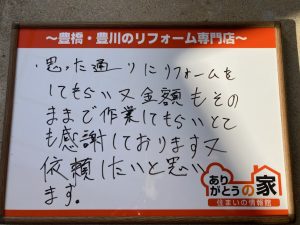 ～豊橋・豊川のリフォーム専門店～
・思った通りにリフォームを
してもらい又金額もその
ままで作業してもらいとて
も感謝しております又
依頼したいと思い
ます。
ありがとうの家
住まいの情報館